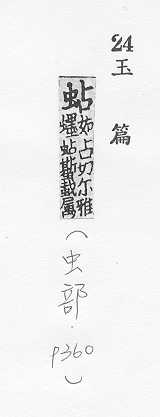 24 玉篇
蛅 如占切尔雅
蟔蛅蟴載属
(虫部·p360)